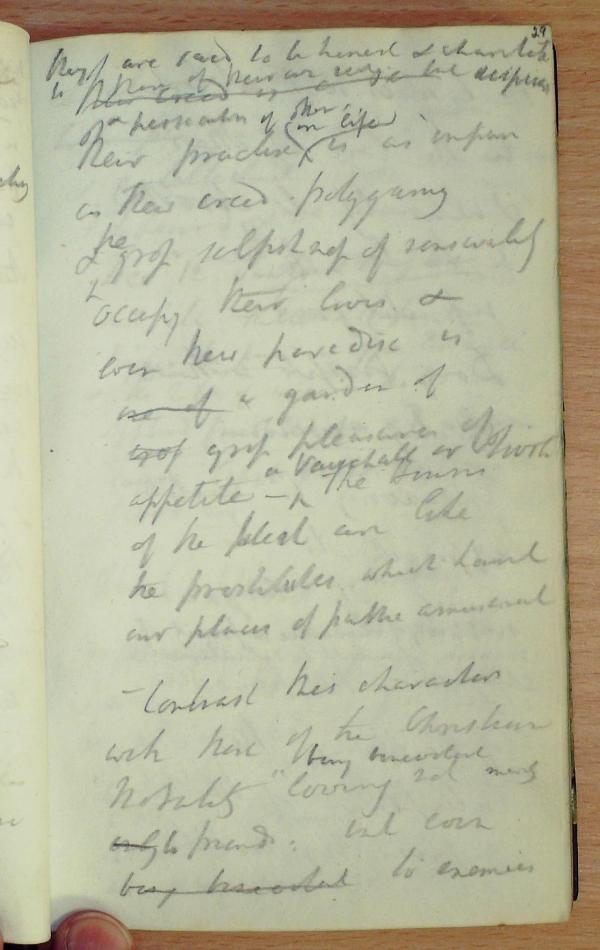 29
They are said to be honest & charitable
to those of their own religion but despisers
or persecutors of others
their practise (in life) is as impure
as their creed. polygamy
& the gross selfishness of sensuality
occupy their lives &
even their paradise is
a garden of
gross pleasures of
a Vauxhall or Tivoli
appetite — the Houris
of the Ideal are like
the prostitutes which haunt
our places of public amusement
– Contrast this character
with that of the Christian
being benevolent
Morality "loving not merely
friends: but even
being benevolent to enemies